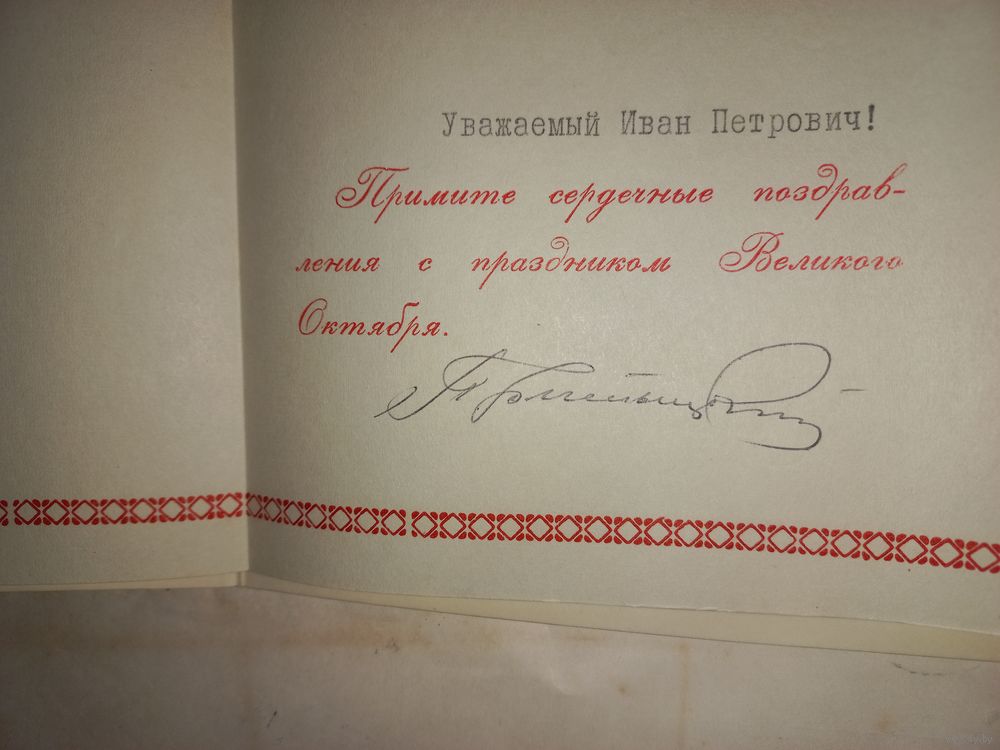 Уважаемый Иван Петрович!
Примите сердечные поздрав-
ления с праздником Великого
Октября.